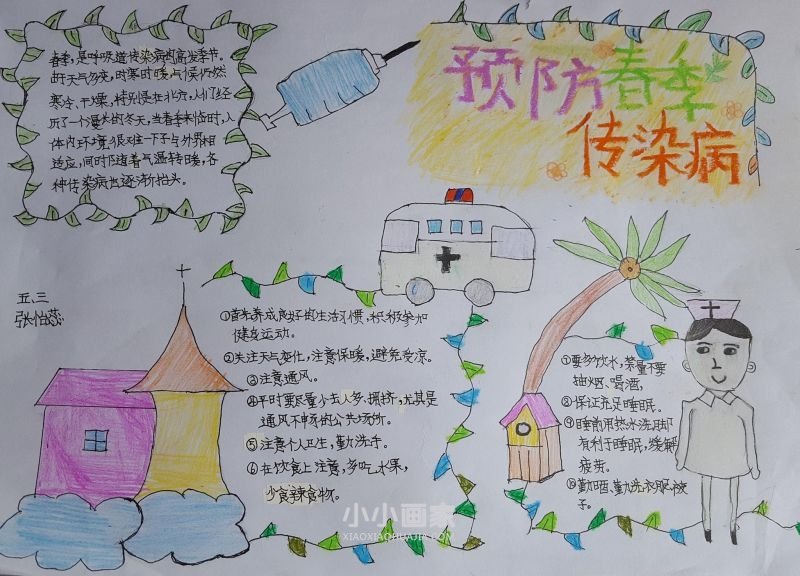 预防春季
传染病
春季,是呼吸道传染病的高发季节。
由于天气多变,时寒时暖,气候仍然
寒冷、干燥,特别是在北方,人们经
历了一个漫长的冬天,当春季来临时,人
体内环境很难一下子与外界相
适应,同时随着气温转暖,各
种传染病也逐渐抬头。
五、三
①首先养成良好的生活习惯,积极参加
健身运动。
②关注天气变化,注意保暖,避免受凉。
③注意通风。
④平时要尽量少去人多、拥挤,尤其是
通风不畅的公共场所。
⑤注意个人卫生,勤洗手。
⑥在饮食上注意,多吃水果,
少食辣食物。
⑦要多饮水,尽量不要
抽烟、喝酒,
⑧保证充足睡眠。
⑨睡前用热水洗脚
有利于睡眠,缓解
疲劳。
⑩勤晒、勤洗衣服被
子。
小小画家